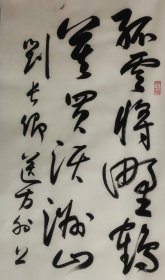 孤雲將野鶴
莫買沃洲山
劉長卿送方外上